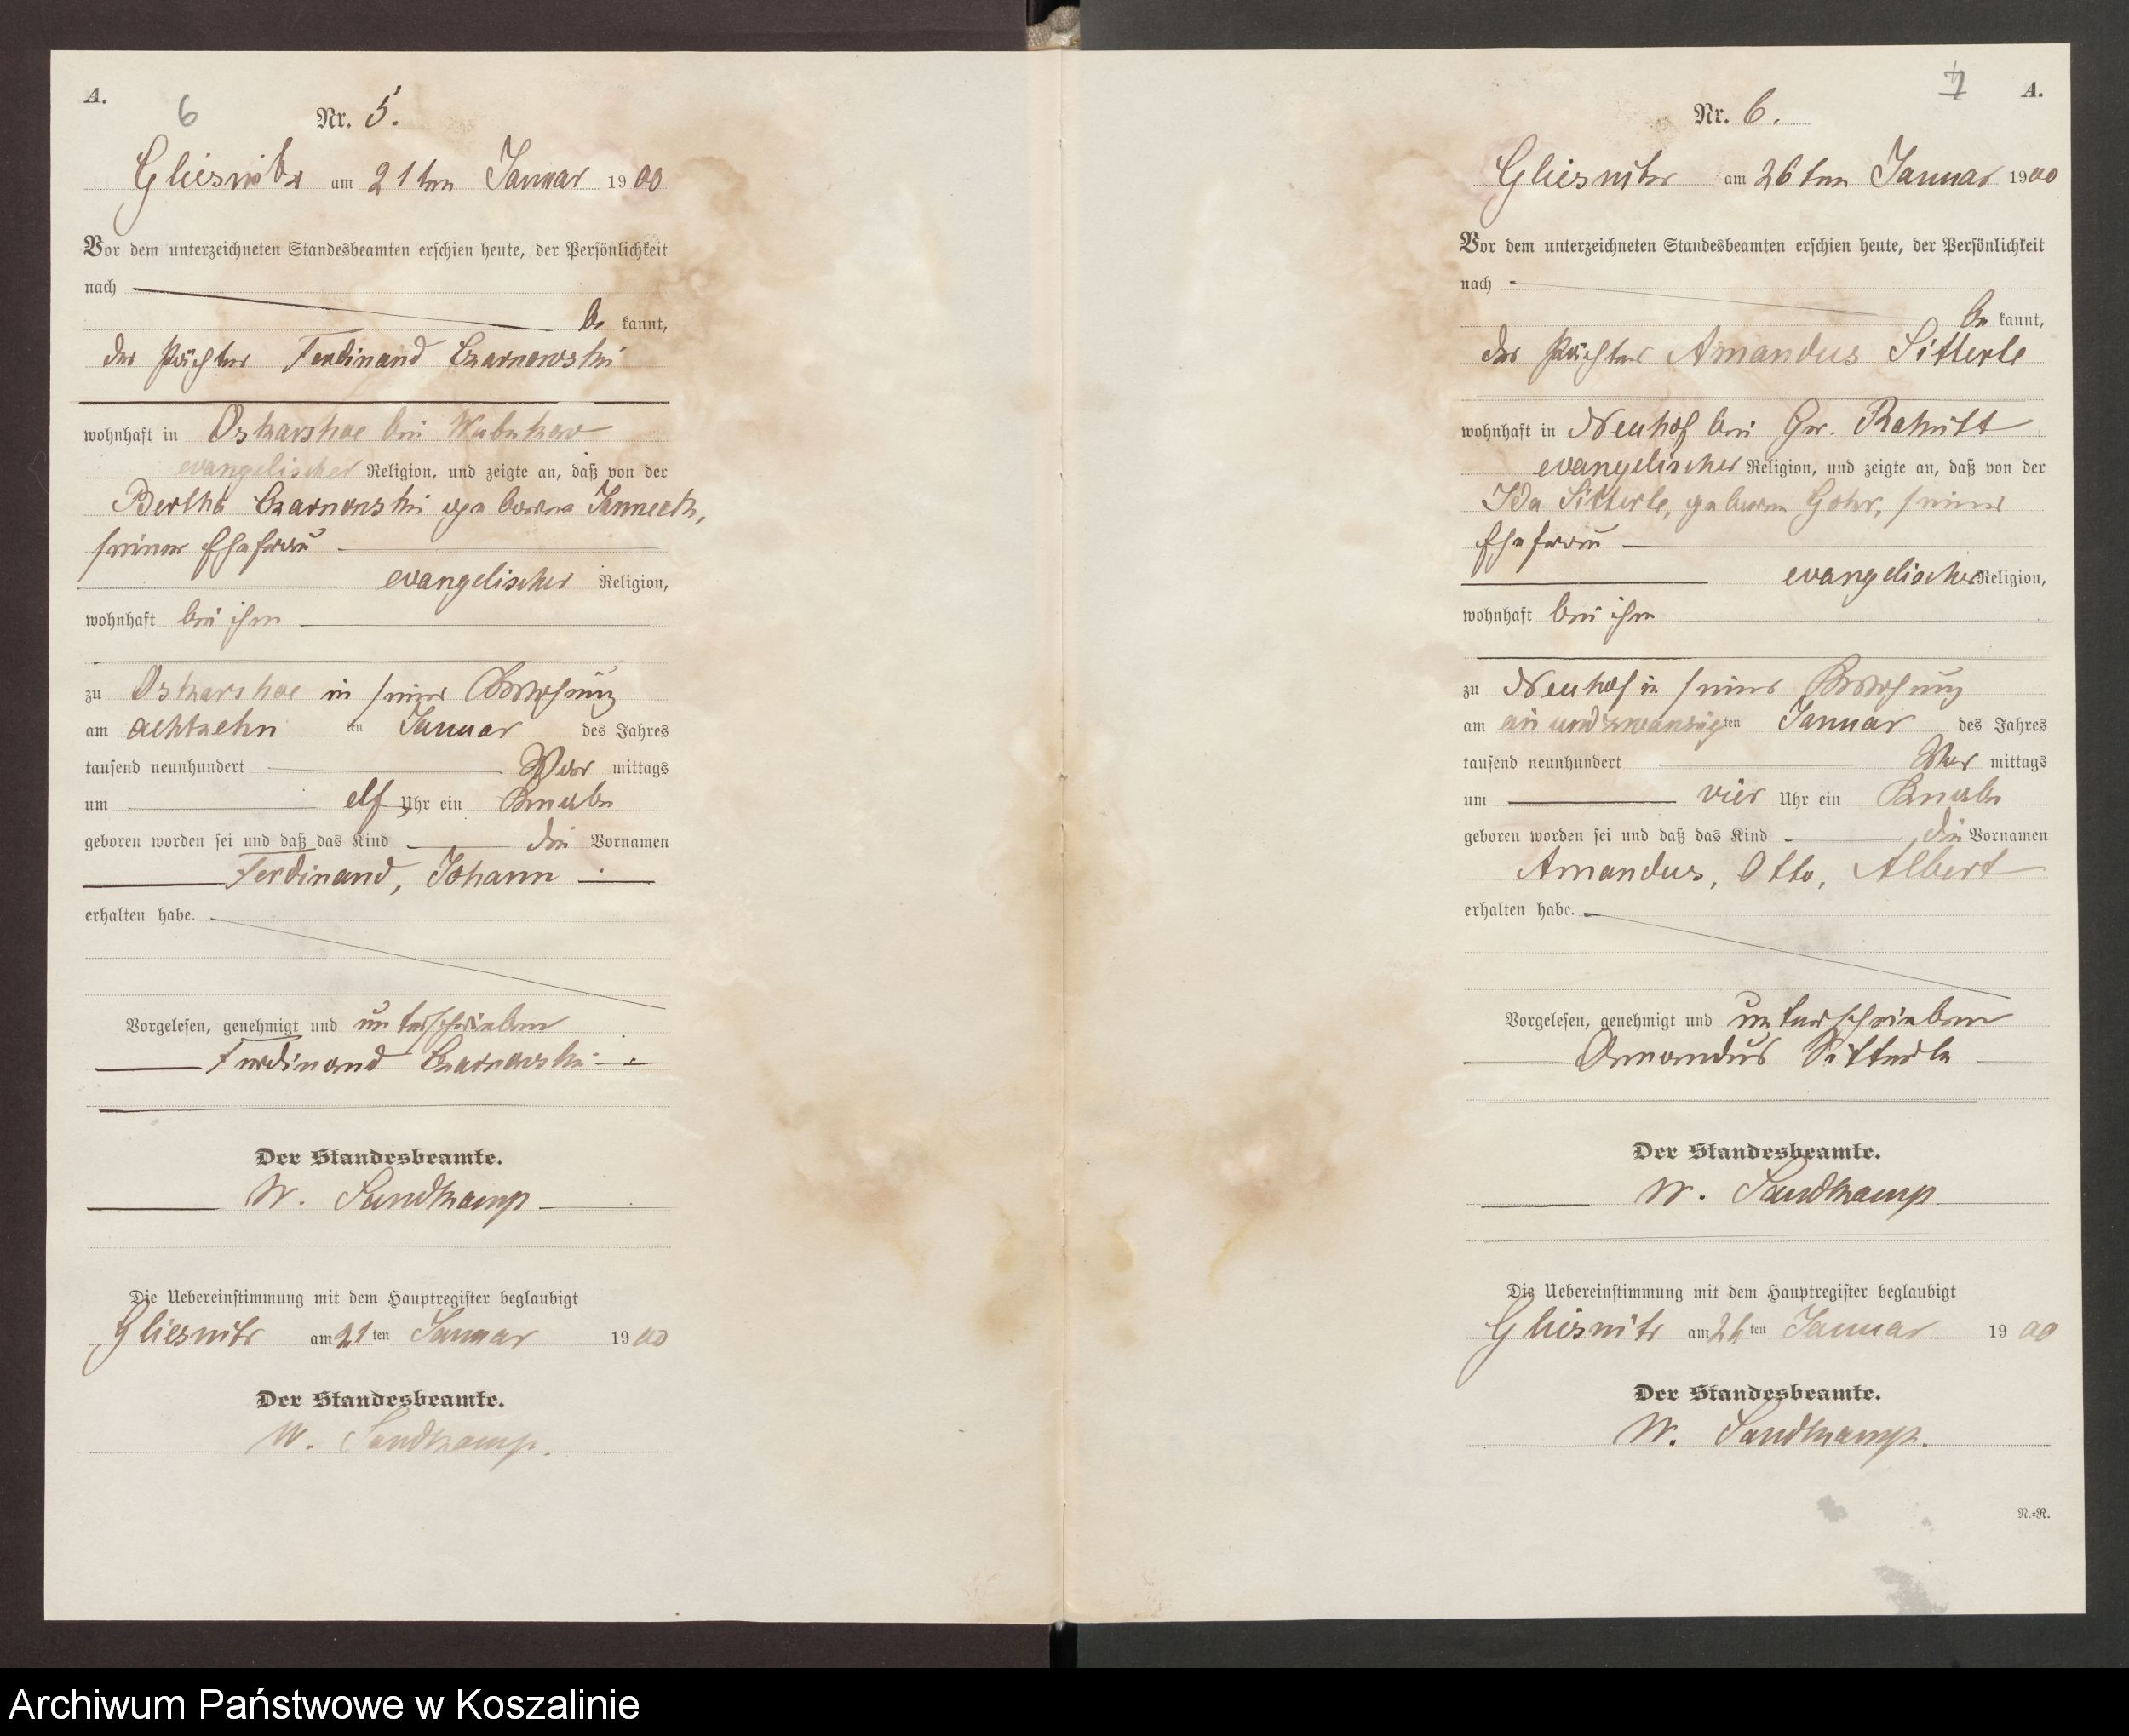 A.
6
Nr. 5.
Gliesnitz am 21ten Januar 1900
Vor dem unterzeichneten Standesbeamten erschien heute, der Persönlichkeit
nach
be kannt,
der Pächter Ferdinand Czarnowski
wohnhaft in Oskarshoe bei Wubukow
evangelischer Religion, und zeigte an, daß von der
Bertha Czarnowski geborene Janneck,
seiner Ehefrau
evangelischer Religion,
wohnhaft bei ihm
zu Oskarshoe in seiner Wohnung
am achtzehn ten Januar des Jahres
tausend neunhundert Vor mittags
um elf Uhr ein Knabe
geboren worden sei und daß das Kind die Vornamen
Ferdinand, Johann
erhalten habe.
Vorgelesen, genehmigt und unterschrieben
Ferdinand Czarnowski
Der Standesbeamte.
W. Sandkamp
Die Uebereinstimmung mit dem Hauptregister beglaubigt
Gliesnitz am 21 ten Januar 1900
Der Standesbeamte.
W. Sandkamp.
7 A.
Nr. 6.
Gliesnitz am 26ten Januar 1900
Vor dem unterzeichneten Standesbeamten erschien heute, der Persönlichkeit
nach
be kannt,
der Pächter Amandus Sitterle
wohnhaft in Neuhof bei Gr. Rakitt
evangelischer Religion, und zeigte an, daß von der
Ida Sitterle, geboren Gohr, seiner
Ehefrau
evangelischer Religion,
wohnhaft bei ihm
zu Neuhof in seiner Wohnung
am ein und zwanzig ten Januar des Jahres
tausend neunhundert Vor mittags
um vier Uhr ein Knabe
geboren worden sei und daß das Kind die Vornamen
Amandus, Otto, Albert
erhalten habe.
Vorgelesen, genehmigt und unterschrieben
Amandus Sitterle
Der Standesbeamte.
W. Sandkamp
Die Uebereinstimmung mit dem Hauptregister beglaubigt
Gliesnitz am 26 ten Januar 1900
Der Standesbeamte.
W. Sandkamp.
N.=R.
Archiwum Państwowe w Koszalinie